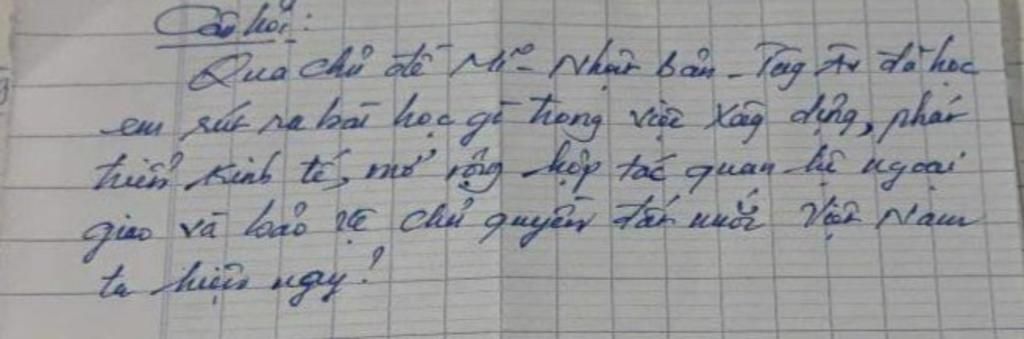 Câu hỏi:
Qua chủ đề Mĩ - Nhật Bản - Tây Âu đã học
em rút ra bài học gì trong việc xây dựng, phát
triển kinh tế, mở rộng hợp tác quan hệ ngoại
giao và bảo vệ chủ quyền đất nước Việt Nam
ta hiện nay?